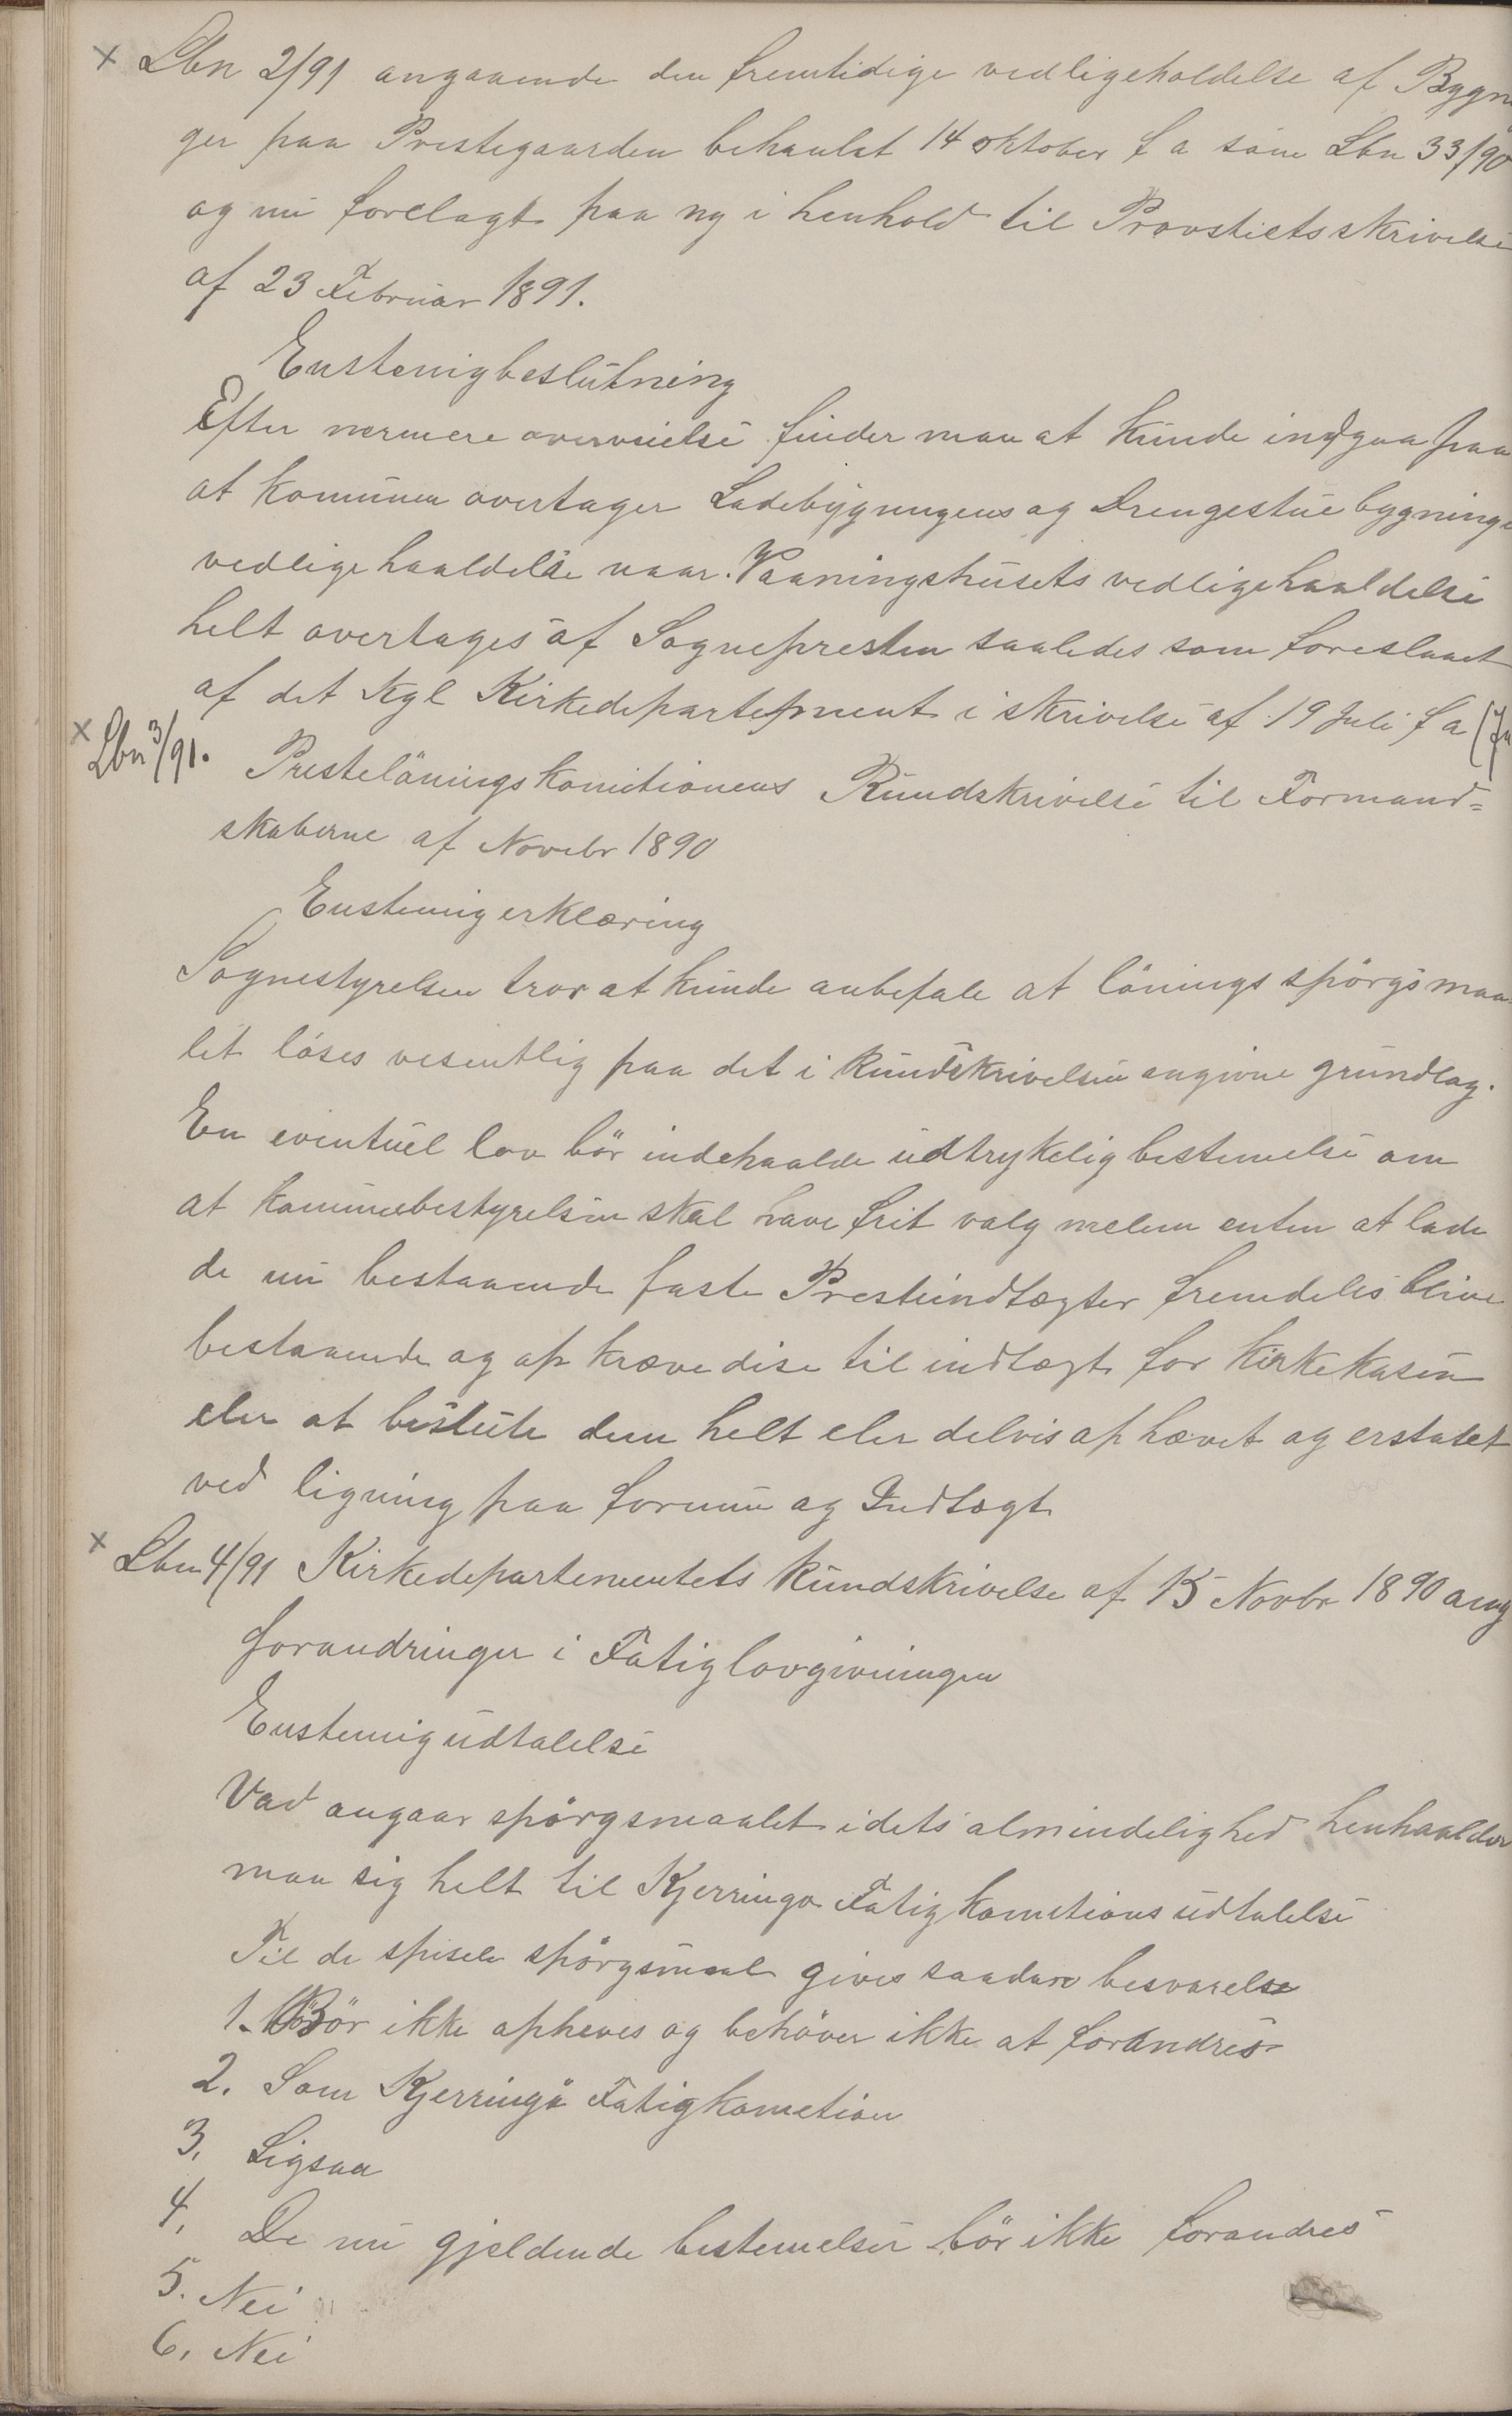 x Lbn 2/91 angaaende den fremtidige vedligeholdelse af Bygnin
ger paa Prestegaarden behanlet 14 oktober f a som Lbn 33/90
og nu forelagt paa ny i henhold til Provstietsskrivelse
af 23 Februar 1891.
Enstemigbeslutning
Efter nærmere overveielse finder man at kunde indgaa paa
at komunen overtager Ladebygningens og Drengestuebygninge
vedligehaaldelse naar. Vaaningshusets vedligehaaldelse
helt overtages af Sognepresten saaledes som foreslaaet
af det Kgl Kirkedepartepment i skrivelse af 19 Juli f a
x Lbn 3/91. Prestelöningskomitionens Rundskrivelse til Formand=
skaberne af Novebr 1890
Enstemigerklæring
Sognestyrelsen tror at kunde anbefale at löningsspörgsmaa
let löses vesentlig paa det i Rundskrivelsen angivne grundlag.
En eventuel lov bör indehaalde udtrykelig bestemelse om
at komunebestyrelsen skal have frit valg melem enten at lade
de nu bestaaende faste Presteindtægter fremdeles blive
bestaaende og op kræve dise til indtægt for kirkekasen
eler at beslute dem helt eler delvis op hævet og erstatet
ved ligning paa formue og Indtægt
x Lbn 4/91 Kirkedepartementets Rundskrivelse af 15 Novbr 1890 ang
forandringer i Fatiglovgivningen
Enstemigudtalelse
Vad angaar spörgsmaalet idets almindelighed henhaalder
man sig helt til Kjerringö Fatigkomitions udtalelse
Til de spisele spörgsmaal gives saadan besvarelse
1. Bör ikke opheves og behöver ikke at forandres
2. Som Kjerringö Fatigkometion
3. Ligsaa
4. De nu gjeldende bestemelser bör ikke forandres
5. Nei
6. Nei